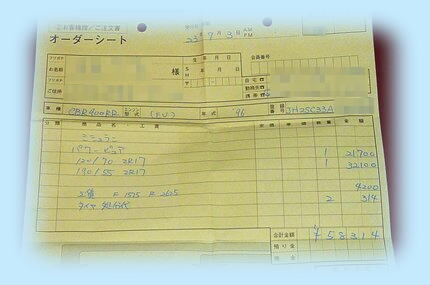 お客様控／ご注文書
オーダーシート
23年7月3日 AM PM
フリガナ
お名前 様
生年月日
年 月 日
会員番号
フリガナ
ご住所
自宅☎
勤務先☎
携帯☎
車種 CBR900RR エンジン型式 年式 '96 登録番号 JH2SC33A
分類 商品名・工賃 定価 単価 数量 金額
ミシュラン
パワーピュア
120/70 ZR17 1 21700
190/55 ZR17 1 32100
工賃 F 1575 R 2625 4200
タイヤ処分代 2 314
合計金額 ¥58314
預り金